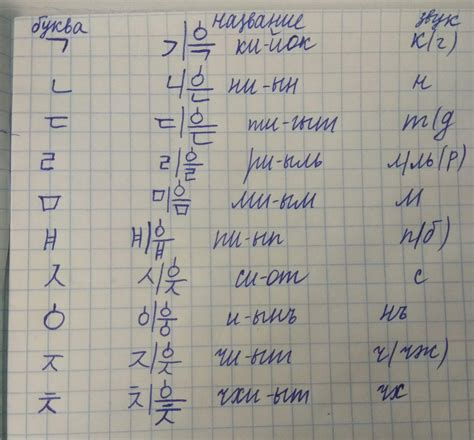 буква название звук
ㄱ 기윽 ки-йок к(г)
ㄴ 니은 ни-ын н
ㄷ 디읃 ти-ыт т(д
ㄹ 리을 ри-ыль л/ль(р)
ㅁ 미음 ми-ым м
ㅂ 비읍 пи-ып п(б)
ㅅ 시읏 си-от с
ㅇ 이응 и-ынъ нъ
ㅈ 지읒 чи-ыт ч(чж)
ㅊ 치읓 чхи-ыт чх